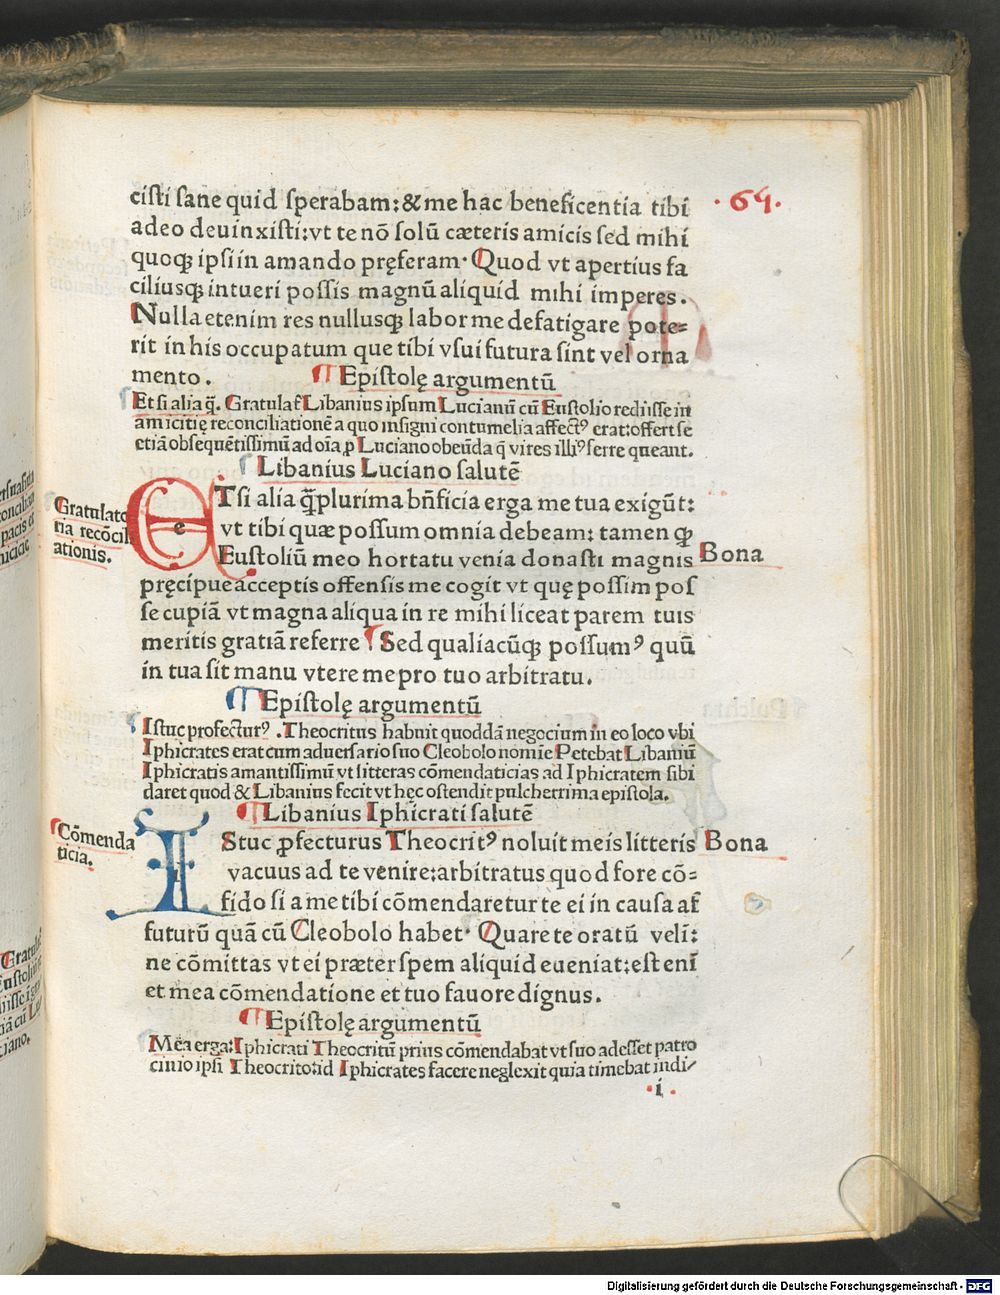 ·64·
cisti sane quid sperabam:&me hac beneficentia tibi
adeo deuinxisti:vt te nō solū cæteris amicis sed mihi
quoqꝫ ipsi in amando pręferam· Quod vt apertius fa
ciliusqꝫ intueri possis magnū aliquid mihi imperes.
Nulla etenim res nullusqꝫ labor me defatigare pote=
rit in his occupatum que tibi vsui futura sint vel orna
mento. ¶ Epistolę argumentū
Et si alia q̄. Gratulaṫ Libanius ipsum Lucianū cū Eustolio rediisse in
amicitię reconciliationē a quo insigni contumelia affectꝰ erat:offert se
etiā obsequētissimū ad oīa ꝓ Luciano obeūda q̄ vires illiꝰ ferre queant.
¶ Libanius Luciano salutē
Gratulato
ria recōcili
ationis.
ETsi alia q̄plurima bn̄ficia erga me tua exigūt:
vt tibi quæ possum omnia debeam: tamen ꝙ
Eustoliū meo hortatu venia donasti magnis
Bona
pręcipue acceptis offensis me cogit vt quę possim pos
se cupiā vt magna aliqua in re mihi liceat parem tuis
meritis gratiā referre ¶ Sed qualiacūqꝫ possumꝰ quū
in tua sit manu vtere me pro tuo arbitratu.
¶ Epistolę argumentū
Istuc profecturꝰ. Theocritus habuit quoddā negocium in eo loco vbi
Iphicrates erat cum aduersario suo Cleobolo nomīe Petebat Libaniū
Iphicratis amantissimū vt litteras cōmendaticias ad Iphicratem sibi
daret quod & Libanius fecit vt hęc ostendit pulcherrima epistola.
¶ Libanius Iphicrati salutē
Cōmenda
ticia.
IStuc ꝓfecturus Theocritꝰ noluit meis litteris
Bona
vacuus ad te venire:arbitratus quod fore cō-
fido si a me tibi cōmendaretur te ei in causa af
futurū quā cū Cleobolo habet· Quare te oratū veli:
ne cōmittas vt ei præter spem aliquid eueniat:est enī
et mea cōmendatione et tuo fauore dignus.
¶ Epistolę argumentū
Mea erga: Iphicrati Theocritū prius cōmendabat vt suo adesset patro
cinio ipsi Theocrito:id Iphicrates facere neglexit quia timebat indi/
·i·
Digitalisierung gefördert durch die Deutsche Forschungsgemeinschaft - DFG